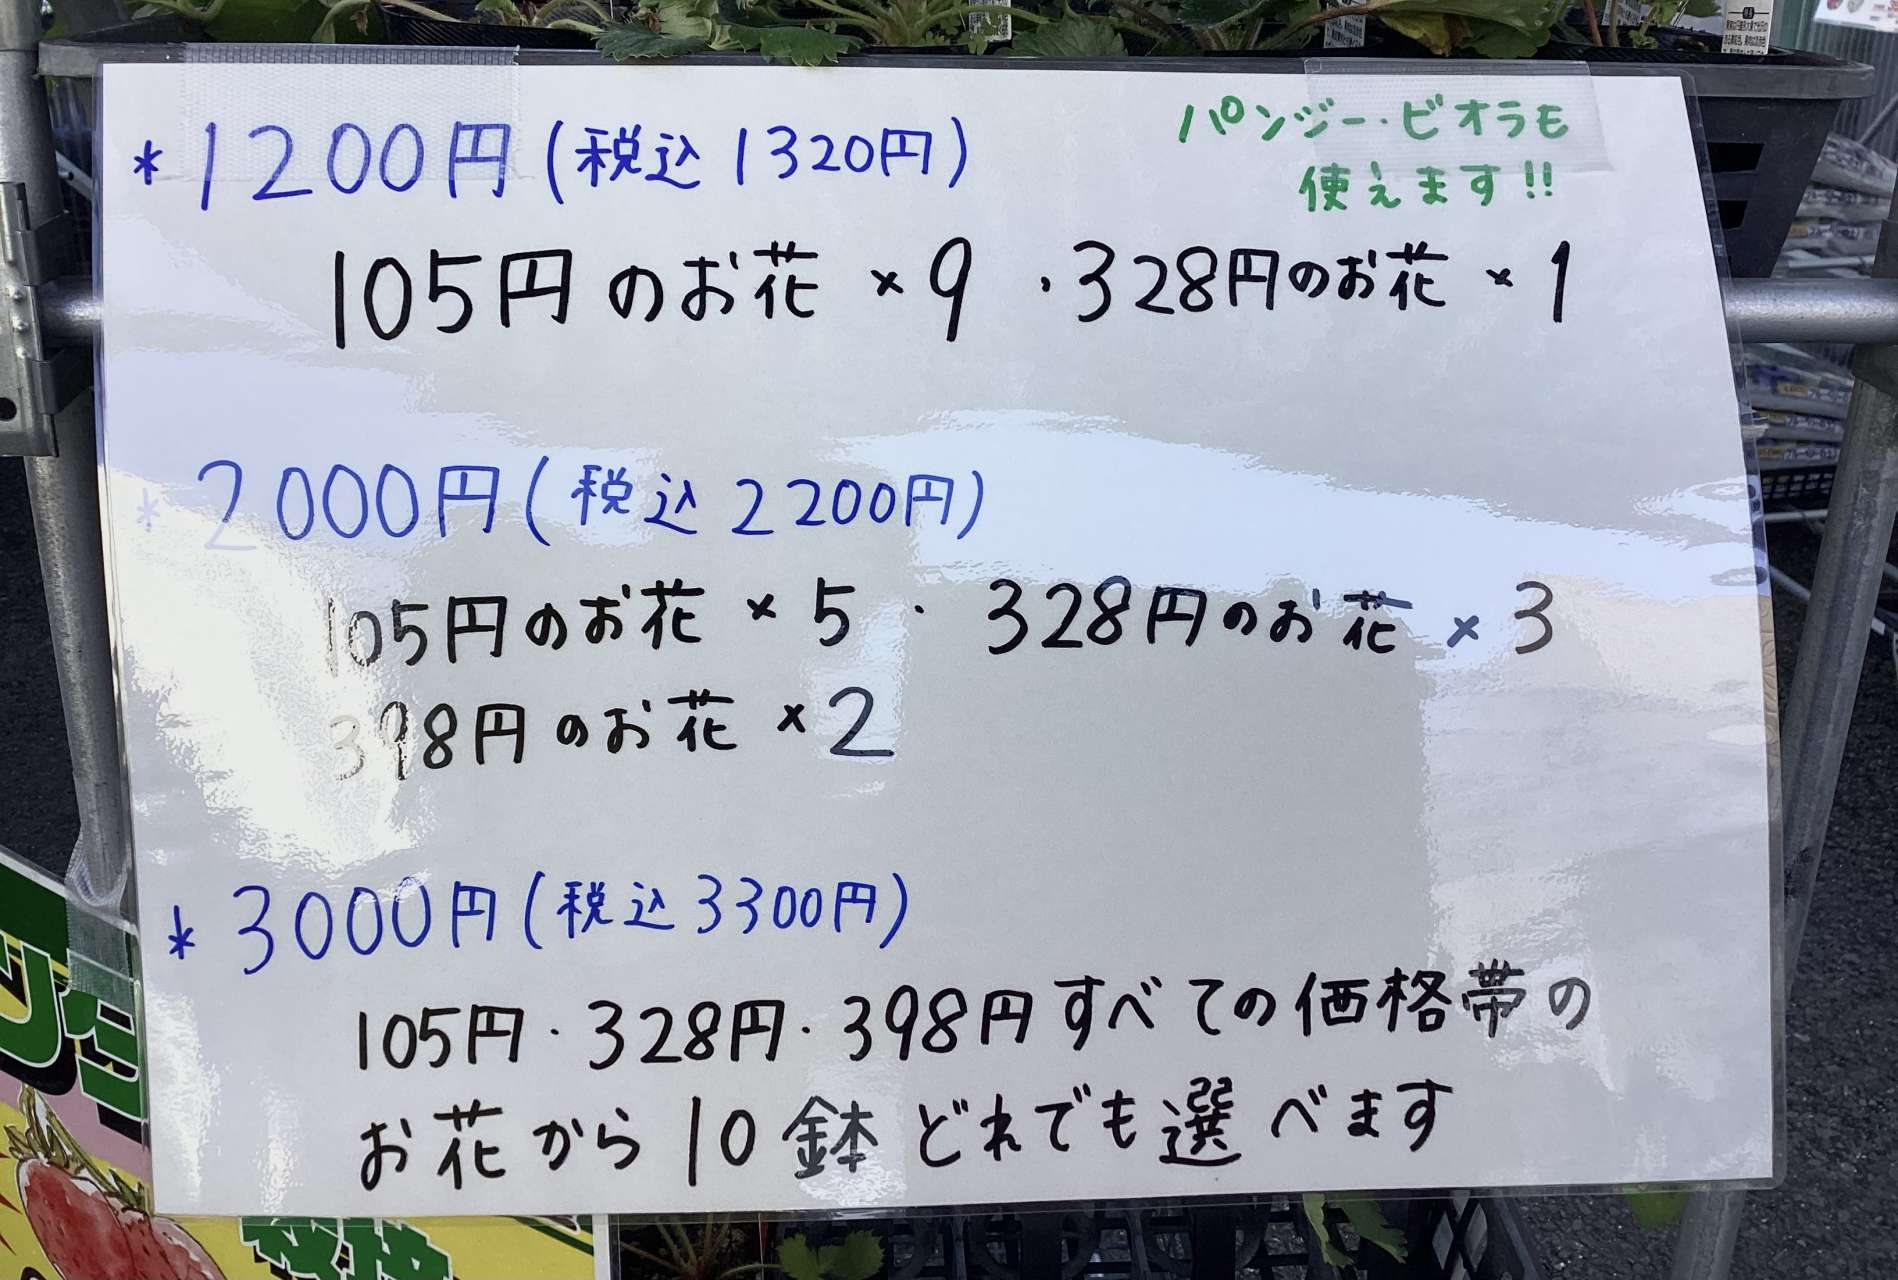 パンジー・ビオラも
使えます!!
*1200円(税込1320円)
105円のお花×9 ・328円のお花×1
*2000円(税込2200円)
105円のお花×5 ・ 328円のお花×3
398円のお花×2
*3000円(税込3300円)
105円・328円・398円すべての価格帯の
お花から10鉢どれでも選べます